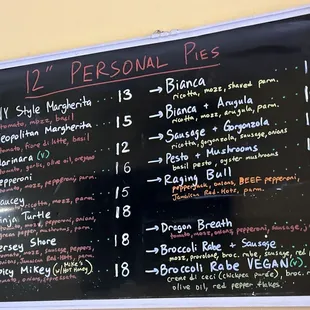 12" PERSONAL PIES
NY Style Margherita ... 13
tomato, mozz, basil
eopolitan Margherita ... 15
tomato, fior di latte, basil
arinara (v) ... 12
tomato, garlic, olive oil, oregano
epperoni ... 16
tomato, mozz, pepperoni, parm.
aucey ... 15
inja Turtle ... 18
tomato, mozz, pepperoni, onions,
peppers, mushrooms, parm.
ersey Shore ... 18
tomato, mozz, sausage, peppers,
onions, Jamaican Red-Hots, parm.
picy Mikey (w/ Mike's Hot Honey) ... 18
→ Bianca
ricotta, mozz, shaved parm.
→ Bianca + Arugula
ricotta, mozz, arugula, parm.
→ Sausage + Gorgonzola
ricotta, gorgonzola, sausage, onions
→ Pesto + Mushrooms
basil pesto, oyster mushrooms
→ Raging Bull
pepperjack, onions, BEEF pepperoni,
Jamaican Red-Hots, parm.
→ Dragon Breath
tomato, mozz, onions, pepperoni, sausage, j
→ Broccoli Rabe + Sausage
mozz, provolone, broc. rabe, sausage, red p
→ Broccoli Rabe VEGAN (v)
crema di ceci (chickpea creme), broc.
olive oil, red pepper flakes.